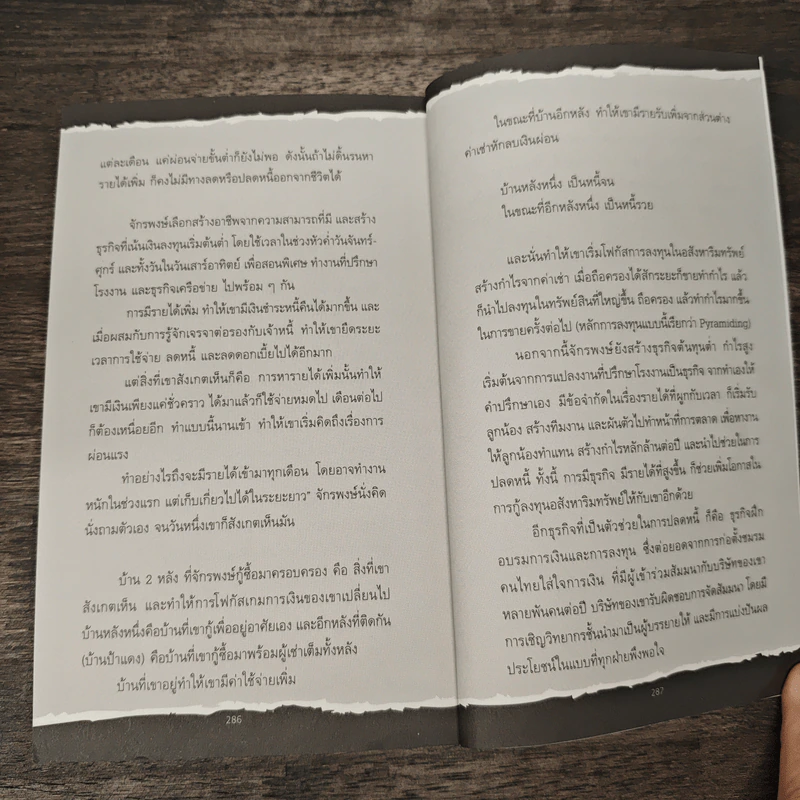 แต่ละเดือน แค่ผ่อนจ่ายขั้นต่ำก็ยังไม่พอ ดังนั้นถ้าไม่ดิ้นรนหา
รายได้เพิ่ม ก็คงไม่มีทางลดหรือปลดหนี้ออกจากชีวิตได้
จักรพงษ์เลือกสร้างอาชีพจากความสามารถที่มี และสร้าง
ธุรกิจที่เน้นเงินลงทุนเริ่มต้นต่ำ โดยใช้เวลาในช่วงหัวค่ำวันจันทร์-
ศุกร์ และทั้งวันในวันเสาร์อาทิตย์ เพื่อสอนพิเศษ ทำงานที่ปรึกษา
โรงงาน และธุรกิจเครือข่าย ไปพร้อม ๆ กัน
การมีรายได้เพิ่ม ทำให้เขามีเงินชำระหนี้คืนได้มากขึ้น และ
เมื่อผสมกับการรู้จักเจรจาต่อรองกับเจ้าหนี้ ทำให้เขายืดระยะ
เวลาการใช้จ่าย ลดหนี้ และลดดอกเบี้ยไปได้อีกมาก
แต่สิ่งที่เขาสังเกตเห็นก็คือ การหารายได้เพิ่มนั้นทำให้
เขามีเงินเพียงแค่ชั่วคราว ได้มาแล้วก็ใช้จ่ายหมดไป เดือนต่อไป
ก็ต้องเหนื่อยอีก ทำแบบนี้นานเข้า ทำให้เขาเริ่มคิดถึงเรื่องการ
ผ่อนแรง
ทำอย่างไรถึงจะมีรายได้เข้ามาทุกเดือน โดยอาจทำงาน
หนักในช่วงแรก แต่เก็บเกี่ยวไปได้ในระยะยาว" จักรพงษ์นั่งคิด
นั่งถามตัวเอง จนวันหนึ่งเขาก็สังเกตเห็นมัน
บ้าน 2 หลัง ที่จักรพงษ์กู้ซื้อมาครอบครอง คือ สิ่งที่เขา
สังเกตเห็น และทำให้การโฟกัสเกมการเงินของเขาเปลี่ยนไป
บ้านหลังหนึ่งคือบ้านที่เขากู้เพื่ออยู่อาศัยเอง และอีกหลังที่ติดกัน
(บ้านป้าแดง) คือบ้านที่เขากู้ซื้อมาพร้อมผู้เช่าเต็มทั้งหลัง
บ้านที่เขาอยู่ทำให้เขามีค่าใช้จ่ายเพิ่ม
286
ในขณะที่บ้านอีกหลัง ทำให้เขามีรายรับเพิ่มจากส่วนต่าง
ค่าเช่าหักลบเงินผ่อน
บ้านหลังหนึ่ง เป็นหนี้จน
ในขณะที่อีกหลังหนึ่ง เป็นหนี้รวย
และนั่นทำให้เขาเริ่มโฟกัสการลงทุนในอสังหาริมทรัพย์
สร้างกำไรจากค่าเช่า เมื่อถือครองได้สักระยะก็ขายทำกำไร แล้ว
ก็นำไปลงทุนในทรัพย์สินที่ใหญ่ขึ้น ถือครอง แล้วทำกำไรมากขึ้น
ในการขายครั้งต่อไป (หลักการลงทุนแบบนี้เรียกว่า Pyramiding)
นอกจากนี้จักรพงษ์ยังสร้างธุรกิจต้นทุนต่ำ กำไรสูง
เริ่มต้นจากการแปลงงานที่ปรึกษาโรงงานเป็นธุรกิจ จากทำเองให้
คำปรึกษาเอง มีข้อจำกัดในเรื่องรายได้ที่ผูกกับเวลา ก็เริ่มรับ
ลูกน้อง สร้างทีมงาน และผันตัวไปทำหน้าที่การตลาด เพื่อหางาน
ให้ลูกน้องทำแทน สร้างกำไรหลักล้านต่อปี และนำไปช่วยในการ
ปลดหนี้ ทั้งนี้ การมีธุรกิจ มีรายได้ที่สูงขึ้น ก็ช่วยเพิ่มโอกาสใน
การกู้ลงทุนอสังหาริมทรัพย์ให้กับเขาอีกด้วย
อีกธุรกิจที่เป็นตัวช่วยในการปลดหนี้ ก็คือ ธุรกิจฝึก
อบรมการเงินและการลงทุน ซึ่งต่อยอดจากการก่อตั้งชมรม
คนไทยใส่ใจการเงิน ที่มีผู้เข้าร่วมสัมมนากับบริษัทของเขา
หลายพันคนต่อปี บริษัทของเขารับผิดชอบการจัดสัมมนา โดยมี
การเชิญวิทยากรชั้นนำมาเป็นผู้บรรยายให้ และมีการแบ่งปันผล
ประโยชน์ในแบบที่ทุกฝ่ายพึงพอใจ
287